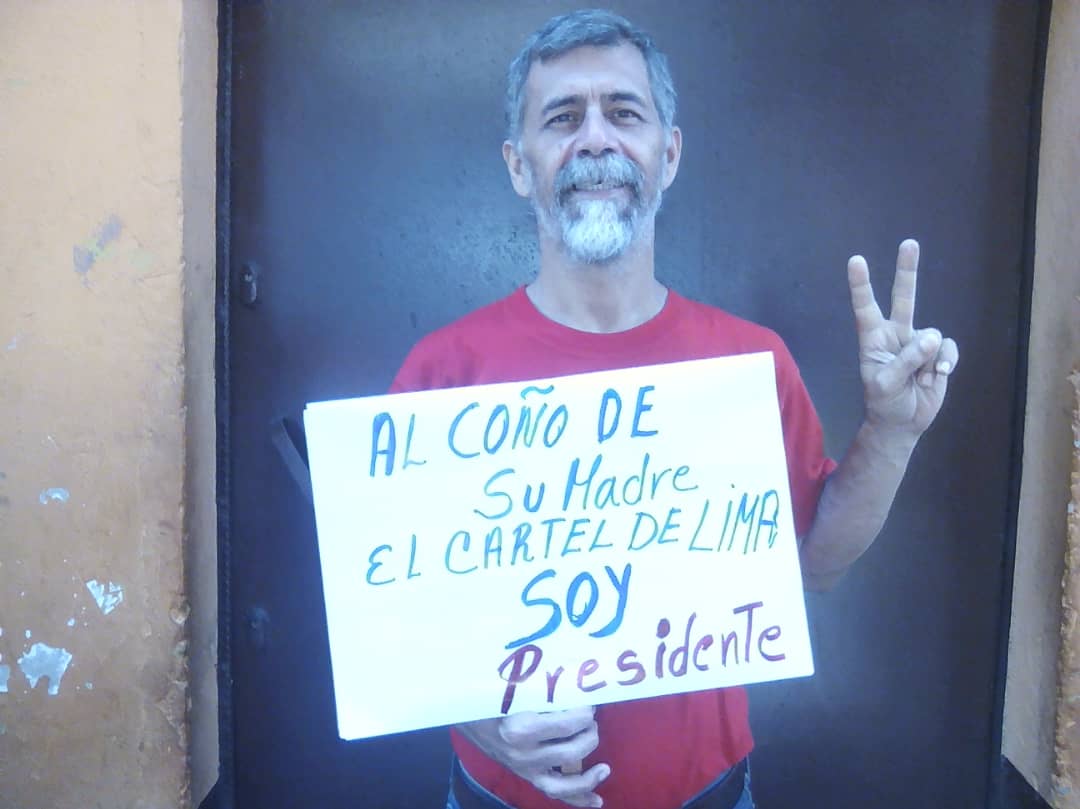 AL COÑO DE
Su Madre
EL CARTEL DE LIMA
SOY
Presidente